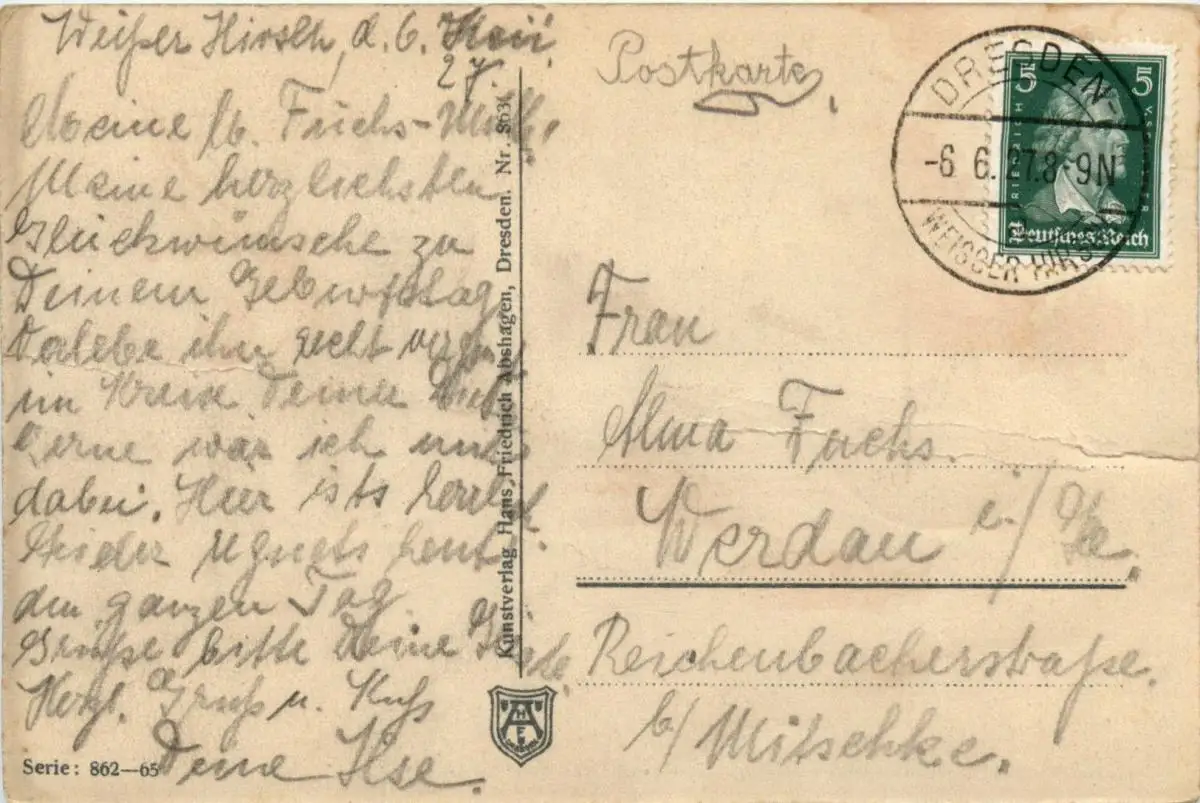 Weißer Hirsch, d. 6. Juni
27.
Meine lb. Fuchs-Mutti,
Meine herzlichsten
Glückwünsche zu
Deinem Geburtstag
Verlebe ihn recht
im Kreise Deiner
Gerne wär ich unter
dabei. Hier ists herrlich.
Leider regnets heut
den ganzen Tag.
Grüße bitte Deine
Herzl. Gruß u. Kuß
Deine Ilse.
Serie: 862—65
Kunstverlag Hans Friedrich Abshagen, Dresden. Nr. 863
Postkarte
DRESDEN-
-6. 6. 27. 8-9N
WEISSER HIRSCH
5 5
FRIEDRICH V. SCHILLER
Deutsches Reich
Frau
Alma Fuchs.
Werdau i./Sa.
Reichenbacherstraße.
b/ Mitschke.